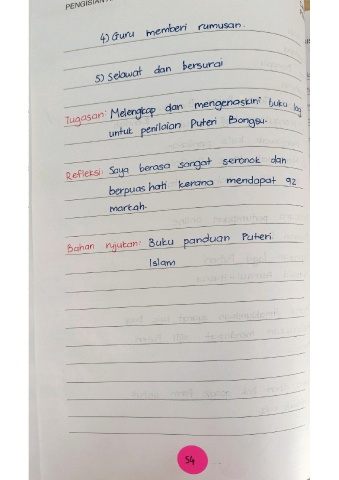 PENGISIAN
4) Guru memberi rumusan.
5) Selawat dan bersurai
Tugasan: Melengkap dan mengenaskini buku log
untuk penilaian Puteri Bongsu.
Refleksi: Saya berasa sangat seronok dan
berpuas hati kerana mendapat 92
markah.
Bahan rujukan: Buku panduan Puteri
Islam
54